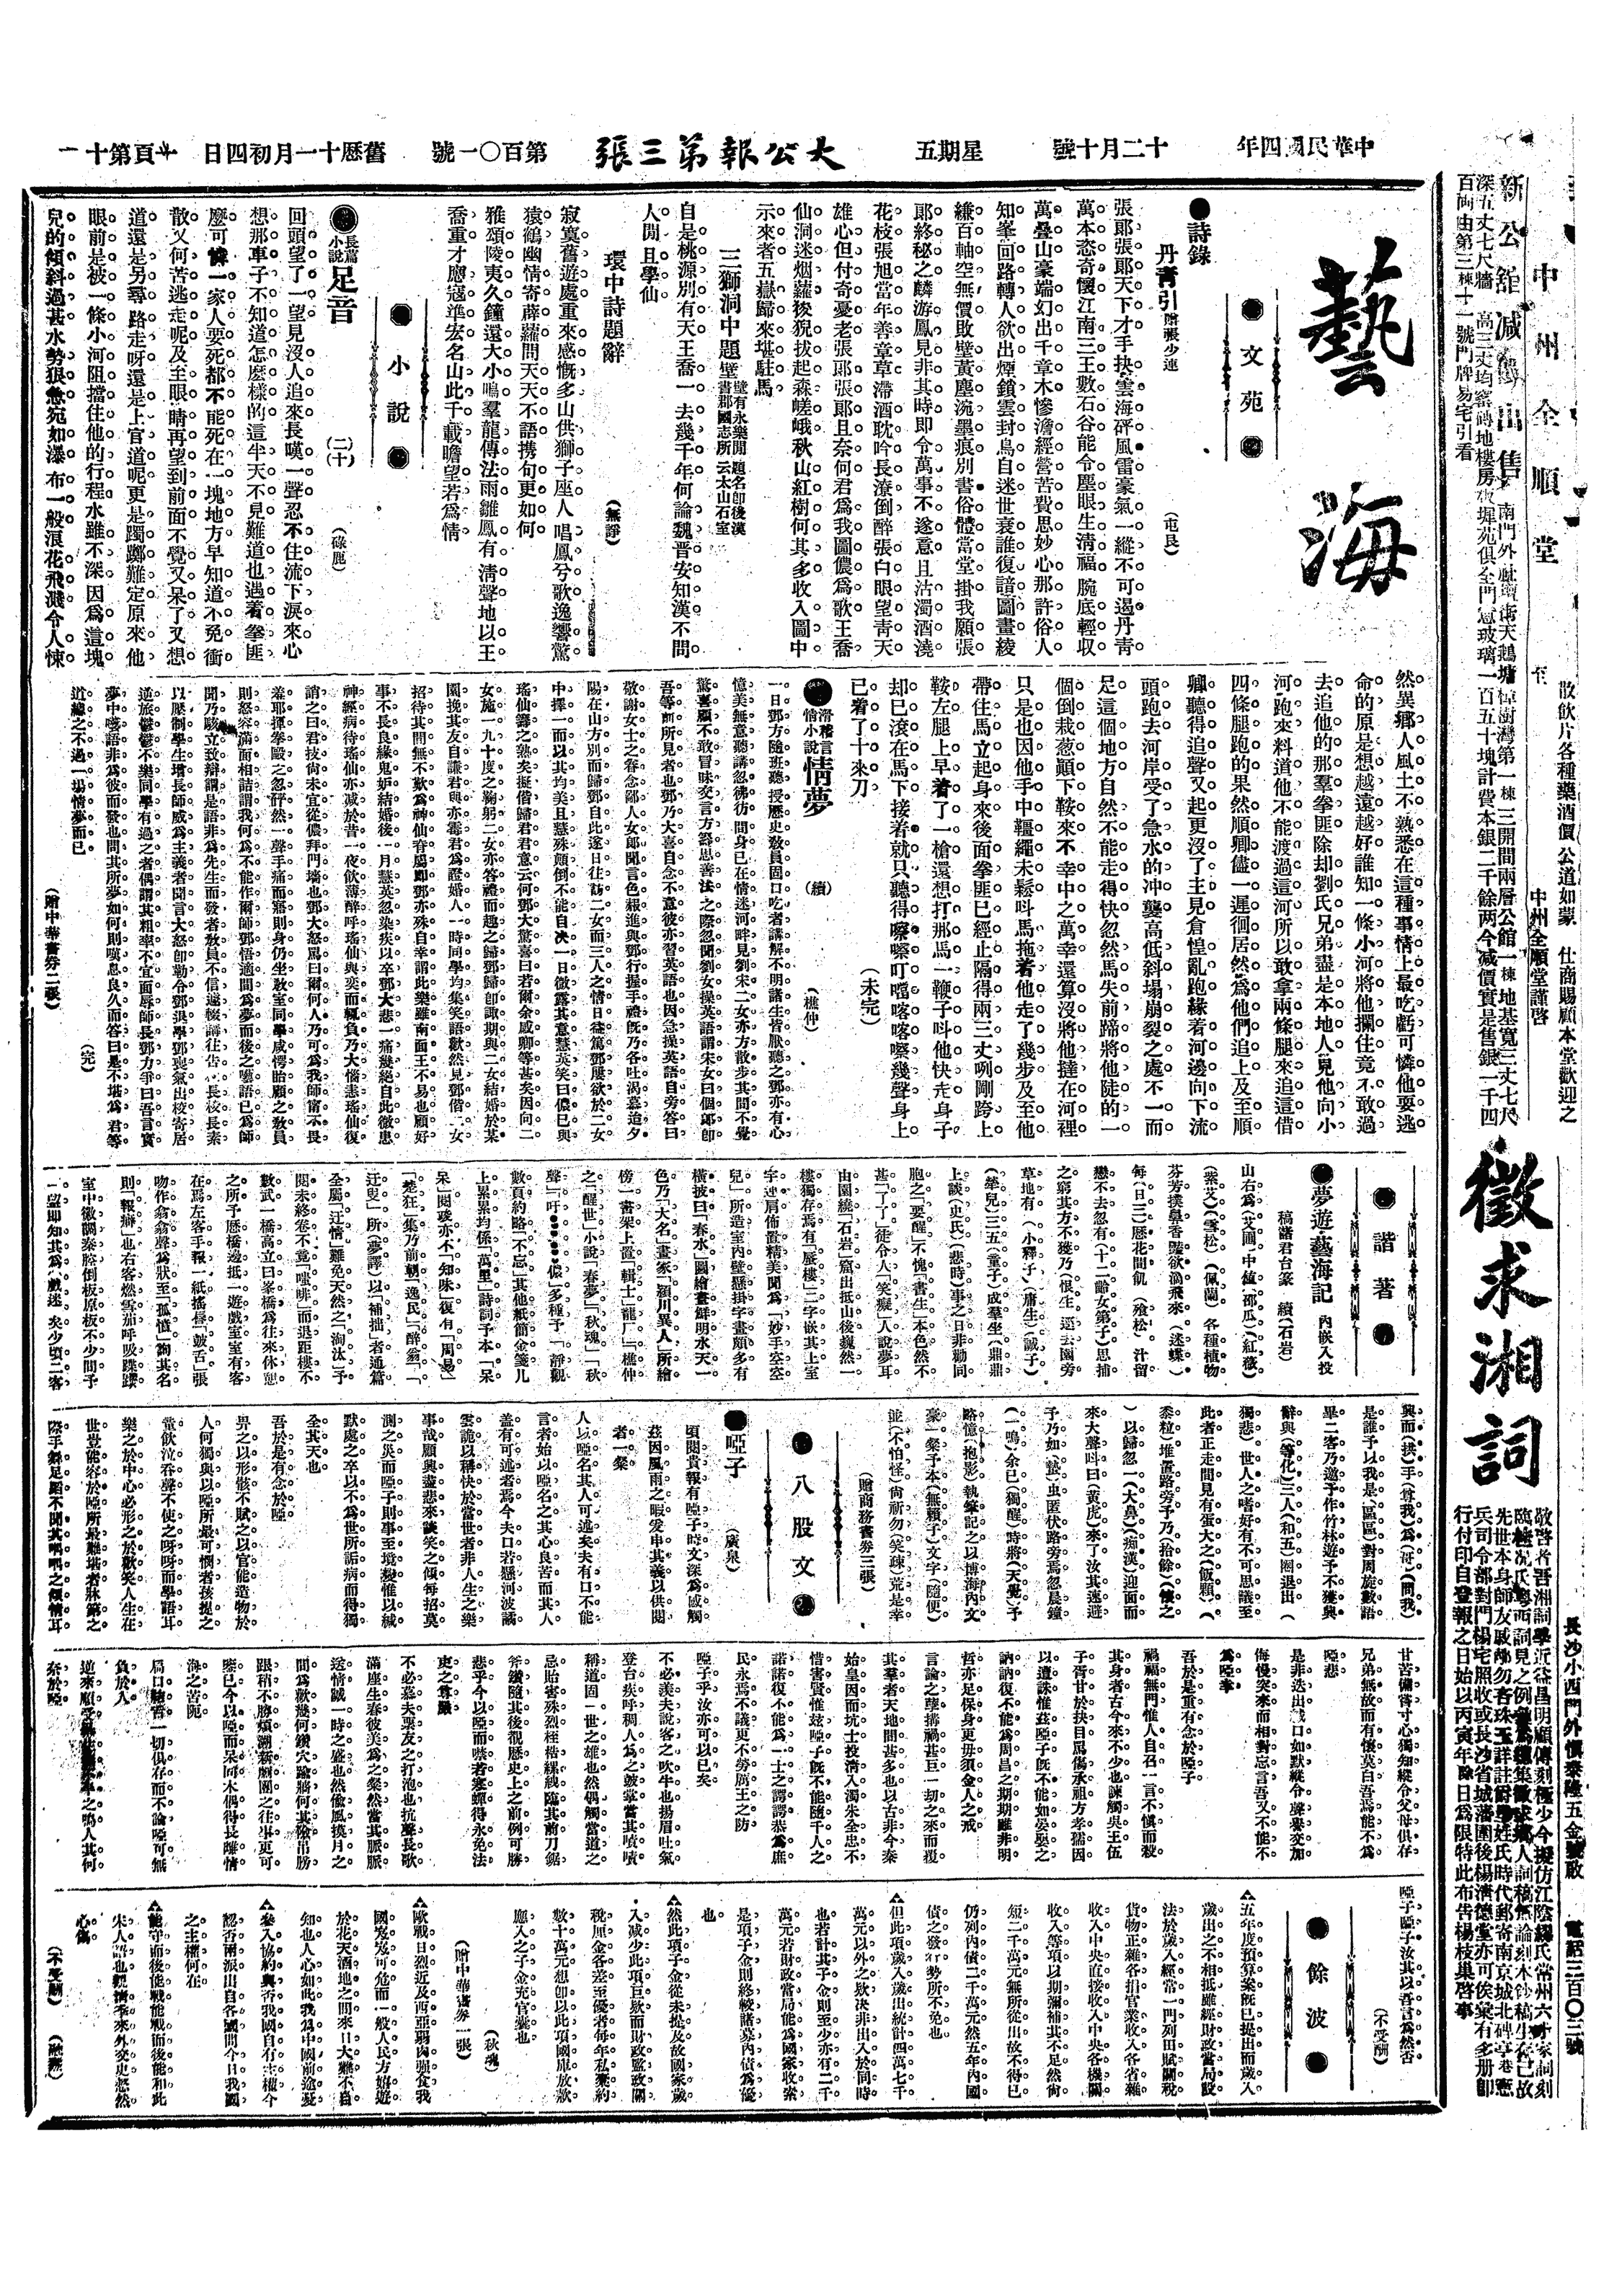 中華民國四年
十二月十號
星期五
大公報第三張
第百〇一號
舊歷十一月初四日
第十一頁
藝海
文苑
●詩錄
丹青引 贈張少連
(屯艮)
張郞張郞天下才手抉雲海砰風雷豪氣一縱不可遏丹青
萬本恣奇懷江南三王數石谷能令塵眼生淸福腕底輕収
萬叠山豪端幻出千章木慘澹經營苦費思妙心那許俗人
知峯回路轉人欲出煙鎖雲封鳥自迷世衰誰復諳圖畫綾
縑百軸空無價敗壁黃塵涴墨痕別書俗體當堂掛我願張
郞終秘之麟游鳳見非其時即令萬事不遂意且沽濁酒澆
花枝張旭當年善章草滯酒耽吟長潦倒醉張白眼望青天
雄心但付奇憂老張郞張郞且奈何君爲我圖儂爲歌王喬
仙洞迷烟蘿後猊拔起森嵯峨秋山紅樹何其多收入圖中
示來者五嶽歸來堪駐馬
三獅洞中題壁 壁有永樂間題名卽後漢書郡國志所云太山石室
自是桃源別有天王喬一去幾千年何論魏晋安知漢不問
人閒且學仙
環中詩題辭
(無諍)
寂寞舊遊處重來感慨多山供獅子座人唱鳳兮歌逸響驚
猿鶴幽情寄薜蘿問天天不語携句更如何
雅頌陵夷久鐘還大小鳴羣龍傳法雨雛鳳有淸聲地以王
喬重才應寇準宏名山此千載瞻望若爲情
小說
長篇小說 足音
(二十)
(碌鹿)
回頭望了一望見沒人追來長嘆一聲忍不住流下淚來心
想那車子不知道怎麼樣的這半天不見難道也遇着拳匪
麼可憐一家人要死都不能死在一塊地方早知道不免衝
散又何苦逃走呢及至眼睛再望到前面不覺又呆了又想
道還是另尋路走呀還是上官道呢更是躅躑難定原來他
眼前是被一條小河阻擋住他的行程水雖不深因爲這塊
兒的傾斜過甚水勢狠急宛如瀑布一般浪花飛濺令人悚
然異鄉人風土不熟悉在這種事情上最吃虧可憐他要逃
命的原是想越遠越好誰知一條小河將他攔住竟不敢過
去追他的那羣拳匪除却劉氏兄弟盡是本地人見他向小
河跑來料道他不能渡過這河所以敢拿兩條腿來追這借
四條腿跑的果然順卿儘一遲徊居然爲他們追上及至順
卿聽得追聲又起更沒了主見倉惶亂跑緣着河邊向下流
頭跑去河岸受了急水的冲襲高低斜塲崩裂之處不一而
足這個地方自然不能走得快忽然馬失前蹄將他陡的一
個倒栽葱顚下鞍來不幸中之萬幸還算沒將他撻在河裡
只是也因他手中韁繩未鬆呌馬拖着他走了幾步及至他
帶住馬立起身來後面拳匪已經止隔得兩三丈咧剛跨上
鞍左腿上早着了一槍還想打那馬一鞭子呌他快走身子
却已滾在馬下接着就只聽得嚓嚓叮噹喀喀嚓幾聲身上
已着了十來刀
(未完)
滑稽言情小說 情夢
(續)
(樵仲)
一日鄧方隨班聽授歷史敎員固口吃者講解不明諸生皆厭聽之鄧亦有心
憶美無意聽講忽彿彷間身已在情迷河畔見劉宋二女亦方散步其間不覺
驚喜願不敢冒昧交言方籌思善法之際忽聞劉女操英語謂宋女曰個郞卽
吾等前所見者也鄧乃大喜自念不意彼亦習英語也因急操英語自旁答曰
敬謝女士之眷念鄙人女郞聞言色赧進與鄧行握手禮旣乃各吐渴慕迨夕
陽在山方別而歸鄧自此遂日往訪二女而三人之情日蓰篤鄧屢欲於二女
中擇一而以其均美且慧殊顚倒不能自决一日微露其意慧英笑曰儂已與
瑤仙籌之熟矣擬偕歸君君意云何鄧大驚喜曰若爾余感卿等甚矣因向二
女施一九十度之鞠躬二女亦答禮而趨之歸鄧歸卽諏期與二女結婚於某
園挽其友自謙君與亦霞君爲證婚人一時同學均集笑語歡然見鄧偕二女
招待其間無不歎爲神仙眷屬卽鄧亦殊自幸謂此樂雖南面王不易也顧好
事不長良緣鬼妬結婚後一月慧英忽染疾以卒鄧大悲一痛幾絕自此微患
神經病待瑤仙亦减於昔一夜飲薄醉呼瑤仙與奕而輒負乃大惱恚瑤仙復
誚之曰君技尙未宜從儂拜門墻也鄧大怒罵曰爾何人乃可爲我師甯不畏
羞耶揮拳毆之忽砰然一聲手痛而寤則身仍坐敎室同學咸愕眙顧之敎員
則怒容滿而相詰謂我何爲不能作爾師鄧悟適間爲夢而後之囈語已爲師
聞乃駭立致辯謂是語非爲先生而發者敎員不信遽輟講往告校長校長素
以壓制學生增長師威爲主義者聞言大怒卽勒令鄧退學鄧喪氣出校寄居
逆旅鬱鬱不樂同學有過之者偶謂其粗率不宜面辱師長鄧力爭曰吾言實
夢中囈語非爲彼而發也問其所夢如何則嘆息良久而答曰是不堪爲君等
道總之不過一場情夢而已
(完)
(贈中華書券二張)
諧著
●夢遊藝海記 內嵌入投稿諸君台篆
續(石岩)
山右爲(艾圃)中植(邵瓜)(紅薇)
(紫艾)(雪松)(佩蘭)各種植物
芬芳撲鼻香豔欲滴飛來(迷蝶)
每(日三)歷花間飢(飧松)汁留
戀不去忽有(十二齡女弟子)思捕
之窮其方不獲乃(恨生)逕去園旁
草地有(小釋子)(蒲生)(誠子)
(華兒)三五(童子)成羣坐(鼎鼎
上談(史氏)(悲時)事之日非勸同
胞之「要醒」不愧「書生」本色然不
甚「了了」徒令人「笑癡」人說夢耳
由園繞「石岩」窟出抵山後巍然一
樓獨存焉有「蜃樓」二字嵌其上室
宇連肩佈置精美聞爲「妙手空空
兒」所造室內壁懸掛字畫頗多有
橫披曰「春水」圖繪畫鮮明水天一
色乃「大名」畫家「潁川異人」所繪
傍一書架上置「輯士」龍厂「樵仲
之「醒世」小說「春夢」「秋魂」「秋
聲」「吁●●●●●儂」多種予「靜觀
數頁約略「不忘」其他紙簡金箋几
上累累均係「萬里」詩詞予本「呆
呆」閱悉亦不「知味」復有「周易」
「楚狂」集乃前朝「逸民」「醉翁」「
迂叟」所(夢譯)以「補拙」者通篇
全屬「迂情」難免天然之「淘汰」予
閱未終卷不覺「嗤啡」而退距樓不
數武一橋高立曰峯橋爲往來休憩
之所予歷橋邊抵一遊戲室室有客
在焉左客手報一紙搖唇「鼓舌」張
吻作翕翕聲爲狀至「孤憤」詢其名
則「報癖」也右客燃雪茄呼吸蹀躞
室中徽調秦腔倒板原板不少間予
一望卽知其爲「戲迷」矣少頃二客
興而(拱)手(尊我)爲(哥)(問我)
是誰予以我是(區區)對周旋數語
畢二客乃邀予作竹林遊予不獲與
辭與(等化)三人(和五)圈退出(
獨悲)世人之嗜好有不可思議至
此者正走間見有蛋大之(飯顆)(
黍粒)堆置路旁予乃(拾餘)(懷之
)以歸忽一(大鼻)(痴漢)迎面而
來大聲呌曰(黄虎)來了汝其迷避
予乃如(蟄)虫匿伏路旁焉忽晨鐘
(一鳴)余已(獨醒)時將(天覺)予
路憶(抱影)執筆記之以博海內文
豪一粲予本(無賴子)文字(隨便)
並(不怕怪)尙祈勿(笑疎)荒是幸
(贈商務書券三張)
八股文
●啞子
(廣泉)
頃閱貴報有啞子時文深爲感觸
茲因風雨之暇爰申其義以供閱
者一粲
人以啞名其人可遽矣夫有口不能
言者始以啞名之其心良苦而其人
蓋有可述者焉今夫口若懸河波譎
雲詭以稱快於當世者非人生之樂
事哉顧興盡悲來談笑之傾每招莫
測之災而啞子則事至境變惟以緘
默處之卒以不爲世所詬病而得獨
全其天也
吾於是有念於啞
畀之以形骸不賦之以官能造物於
人何獨與以啞所最可憫者孩提之
童飲泣吞聲不使之呀呀而學語耳
樂之於中心必形之於歡笑人生在
世豈能容於啞所最難堪者牀笫之
際手舞足蹈不聞其喁喁之傾情耳
甘苦備嘗寸心獨知縱令父母俱存
兄弟無故而有懷莫白吾爲能不爲
啞悲
是非迭出緘口如默縱令謗譽交加
侮慢突來而相對忘言吾又不能不
爲啞幸
吾於是重有念於啞子
禍福無門惟人自召一言不愼而殺
其身者古今來不少也諫觸吳王伍
子胥甘於抉目罵傷承祖方孝孺因
以遭誅惟茲啞子旣不能如晏嬰之
訥訥復不能爲周昌之期期雖非明
哲亦足保身更毋須金人之戒
言論之孽搆禍甚巨一切之來而覆
其羣者天地間甚多也以古非今秦
始皇因而坑士投淸入濁朱全忠不
惜害賢惟玆啞子旣不能隨千人之
諾諾復不能爲一士之諤諤恭爲庶
民永焉不議更不勞厲王之防
啞子乎汝亦可以已矣
不必羨夫說客之吹牛也揚眉吐氣
登台疾呼稠人爲之鼓掌當其嘖嘖
稱道固一世之雄也然偶觸當道之
忌貽害殊烈桎梏縲絏臨其前刀鋸
斧鑕隨其後覩歷史上之前例可勝
悲乎今以啞而噤若寒蟬得永免法
吏之尊嚴
不必慕夫票友之打泡也抗聲長歌
滿座生春彼美爲之粲然當其脈脈
送情誠一時之盛也然偷風摸月之
間爲歡幾何鑽穴踰牆何其微吊膀
跟稍不勝煩溯新劇團之往事更可
慨已今以啞而呆同木偶得長離情
海之苦阨
局口結舌一切俱存而不論啞可無
負於人
啞子啞子汝其以吾言爲然否
(不受酬)
餘波
▲五年度預算案旣已提出而歲入
歲出之不相抵雖經財政當局設
法於歲入經常一門列田賦關稅
貨物正雜各捐官業收入各省雜
收入中央直接收入中央各機關
收入等項以期彌補其不足然尙
短二千萬元無所從出故不得已
仍列內債二千萬元然五年內國
債之發行勢所不免也
▲但此項歲入歲出統計四萬七千
萬元以外之欵决非出入於同時
也若計其子金則至少亦有二千
萬元若財政當局能爲國家收索
是項子金則終較諸募內債爲優
也
▲然此項子金從未提及故國家歲
入减少此項巨欵而財政監政關
稅厘金各差至優者每年私業約
數十萬元想卽以此項國庫放款
應入之子金充官囊也
(秋魂)
(贈中華書券一張)
▲歐戰日烈近及西亞弱肉强食我
國岌岌可危而一般人民方嬉遊
於花天酒地之間來日大難不自
知也人心如此我爲中國前途憂
▲參入協約與否我國自有主權今
認否兩派出自各國問今日我國
之主權何在
▲能守而後能戰能戰而後能和此
宋人語也觀淸季來外交史悠然
心傷
(不受酬)
徵求湘詞
敬啓者吾湘詞學近益昌明顧傳刻極少今擬仿江陰繆氏常州六十家詞刻
行付印自登報之日始以丙寅年除日爲限特此布告楊枝巢啓事
長沙小西門外愼泰隆五金號啟 電話三百〇二號
中州全順堂
散飲片各種藥酒價公道如蒙 仕商賜顧本堂歡迎之
中州全順堂謹啓
新公館減價出售